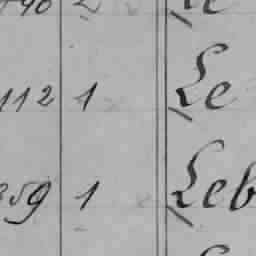 112 1 Le
359 1 Leb